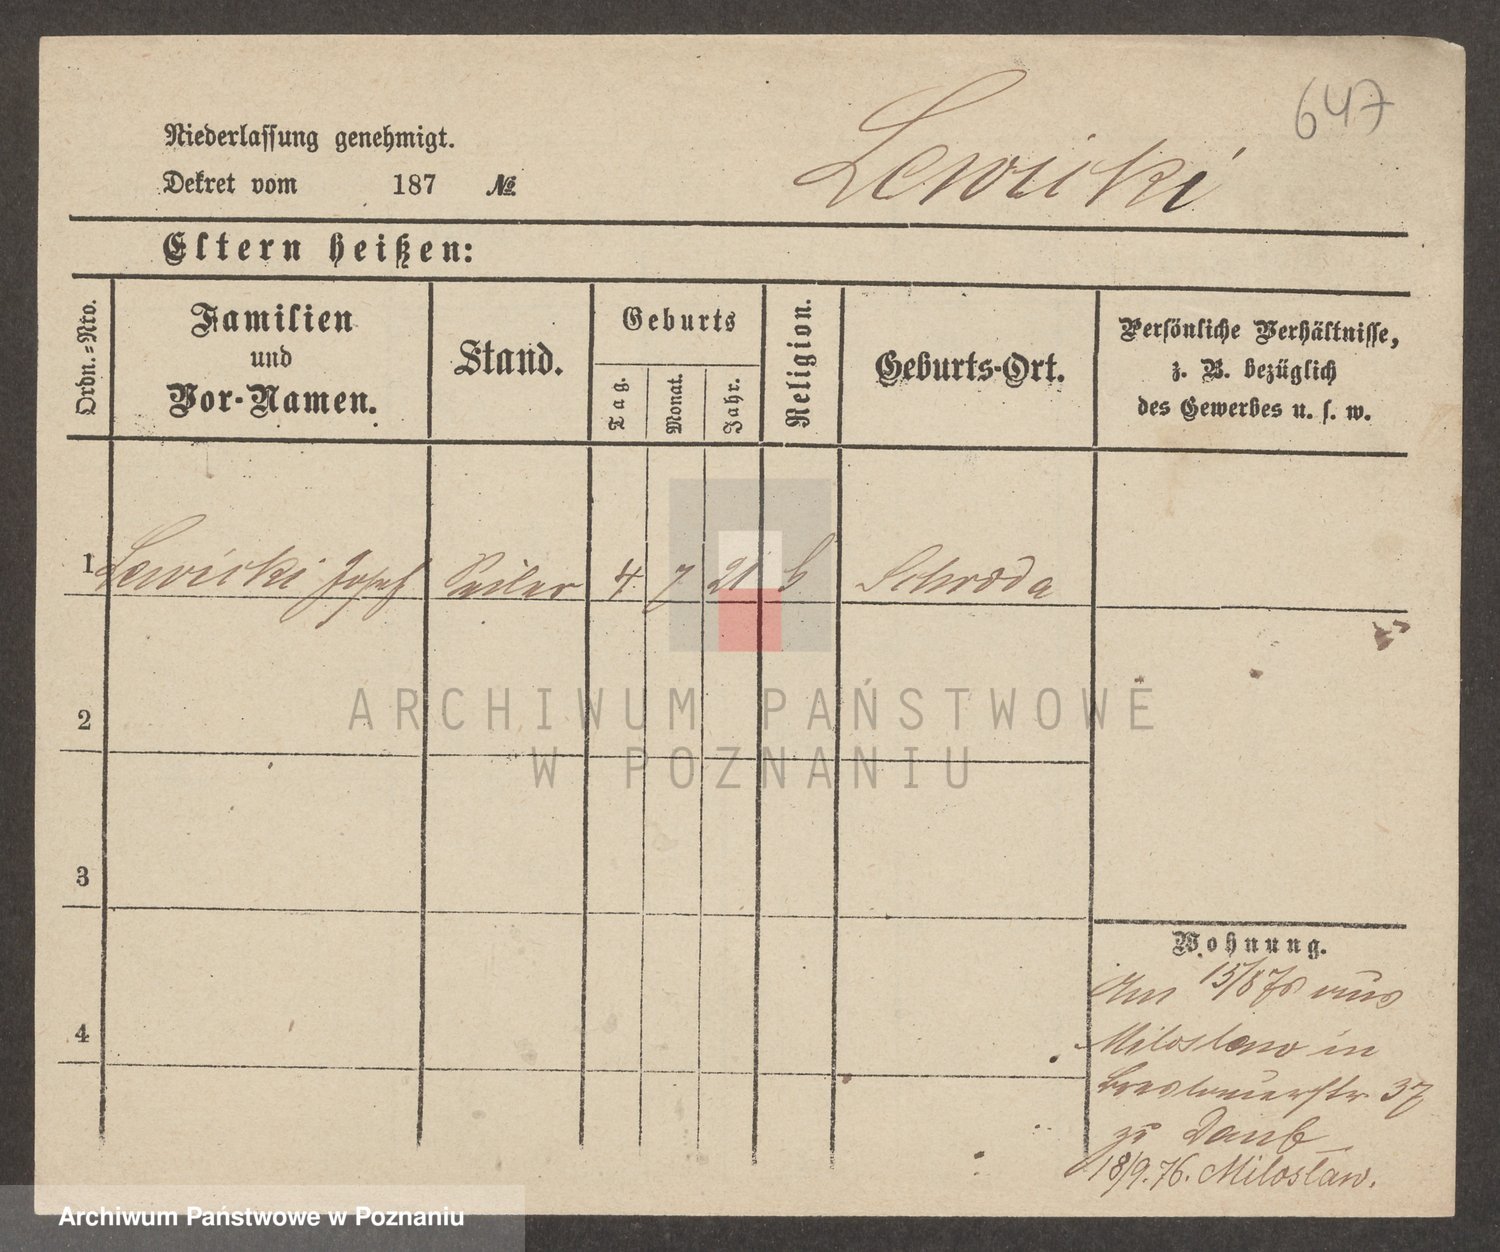 647
Niederlassung genehmigt.
Lewicki
Dekret vom 187 №
Eltern heißen:
Ordn.-Nro.
Familien
und
Vor-Namen.
Stand.
Geburts
Tag.
Monat.
Jahr.
Religion.
Geburts-Ort.
Persönliche Verhältnisse,
z. B. bezüglich
des Gewerbes u. s. w.
1 Lewicki Josef Seiler 4 7 21 k Schroda
2
3
4
Wohnung.
Am 15/8 75 aus
Miloslaw in
Breslauerstr. 37
zu Daub
18/9.76. Miloslaw.
ARCHIWUM PAŃSTWOWE
W POZNANIU
Archiwum Państwowe w Poznaniu